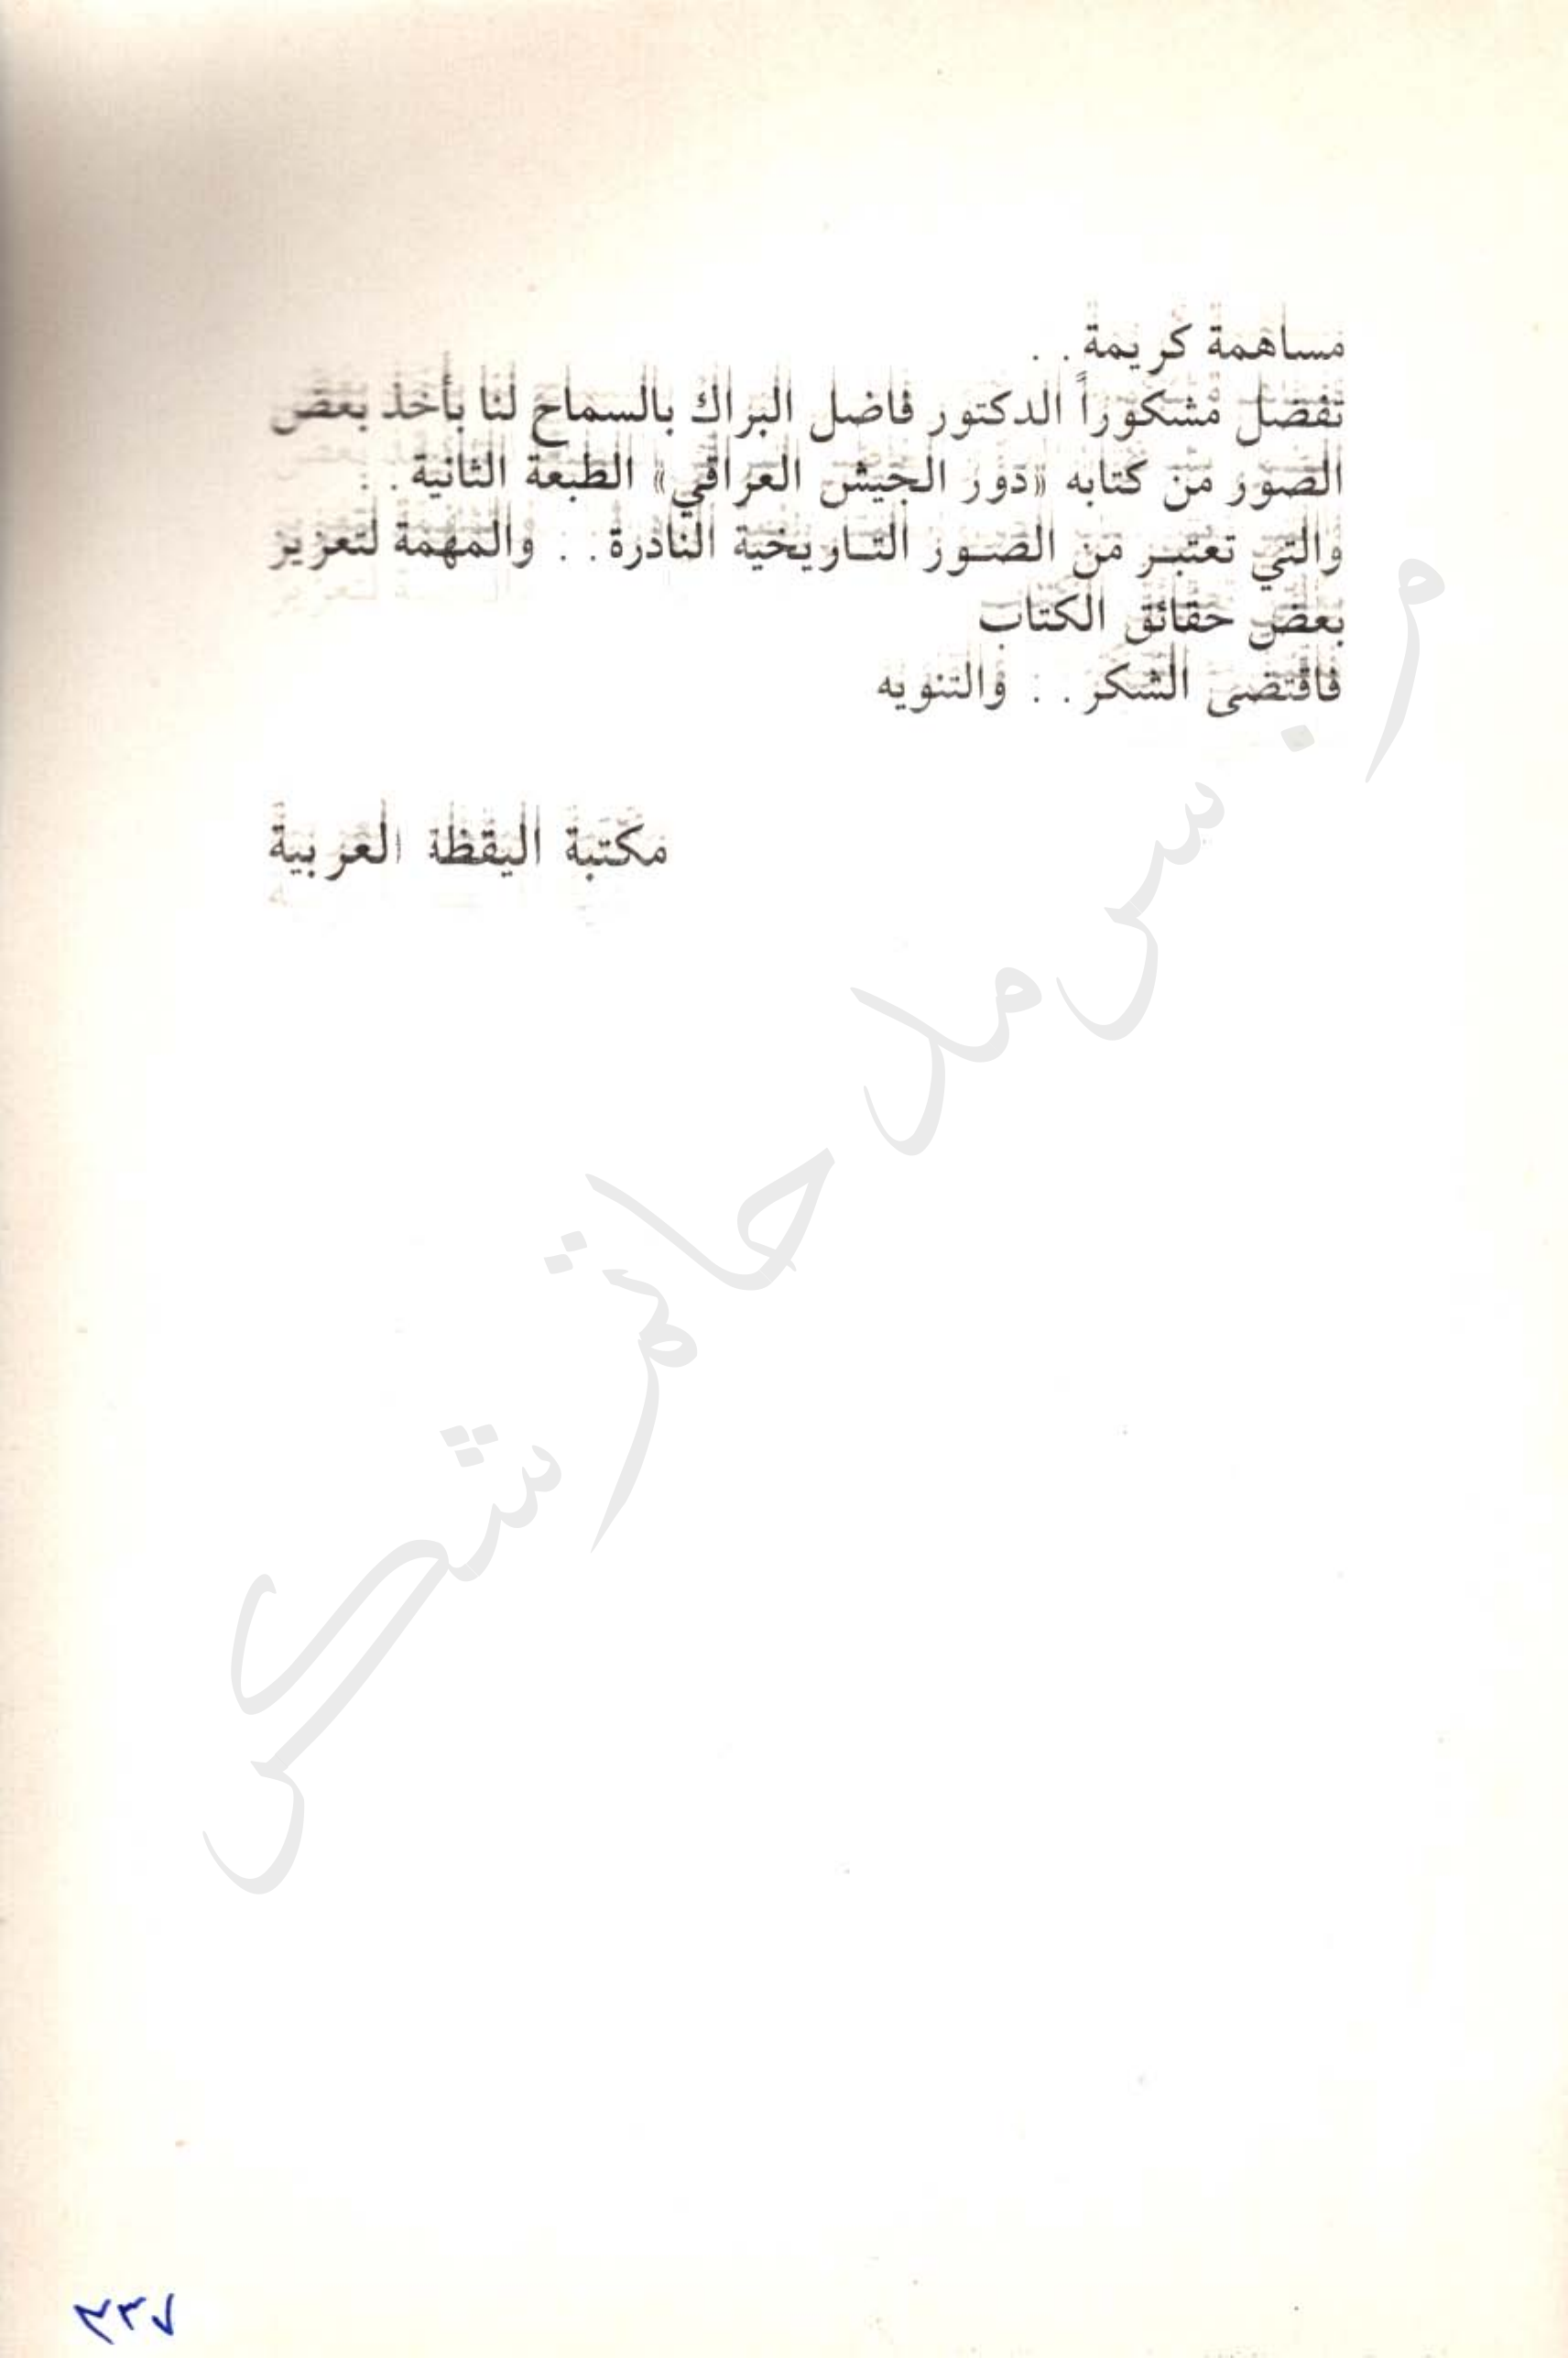 مساهمة كريمة . .
تفضل مشكوراً الدكتور فاضل البراك بالسماح لنا بأخذ بعض
الصور من كتابه «دور الجيش العراقي» الطبعة الثانية . .
والتي تعتبـر من الصـور التـاريخية النادرة . . والمهمة لتعزيز
بعض حقائق الكتاب
فاقتضى الشكر . . والتنويه
مكتبة اليقظة العربية